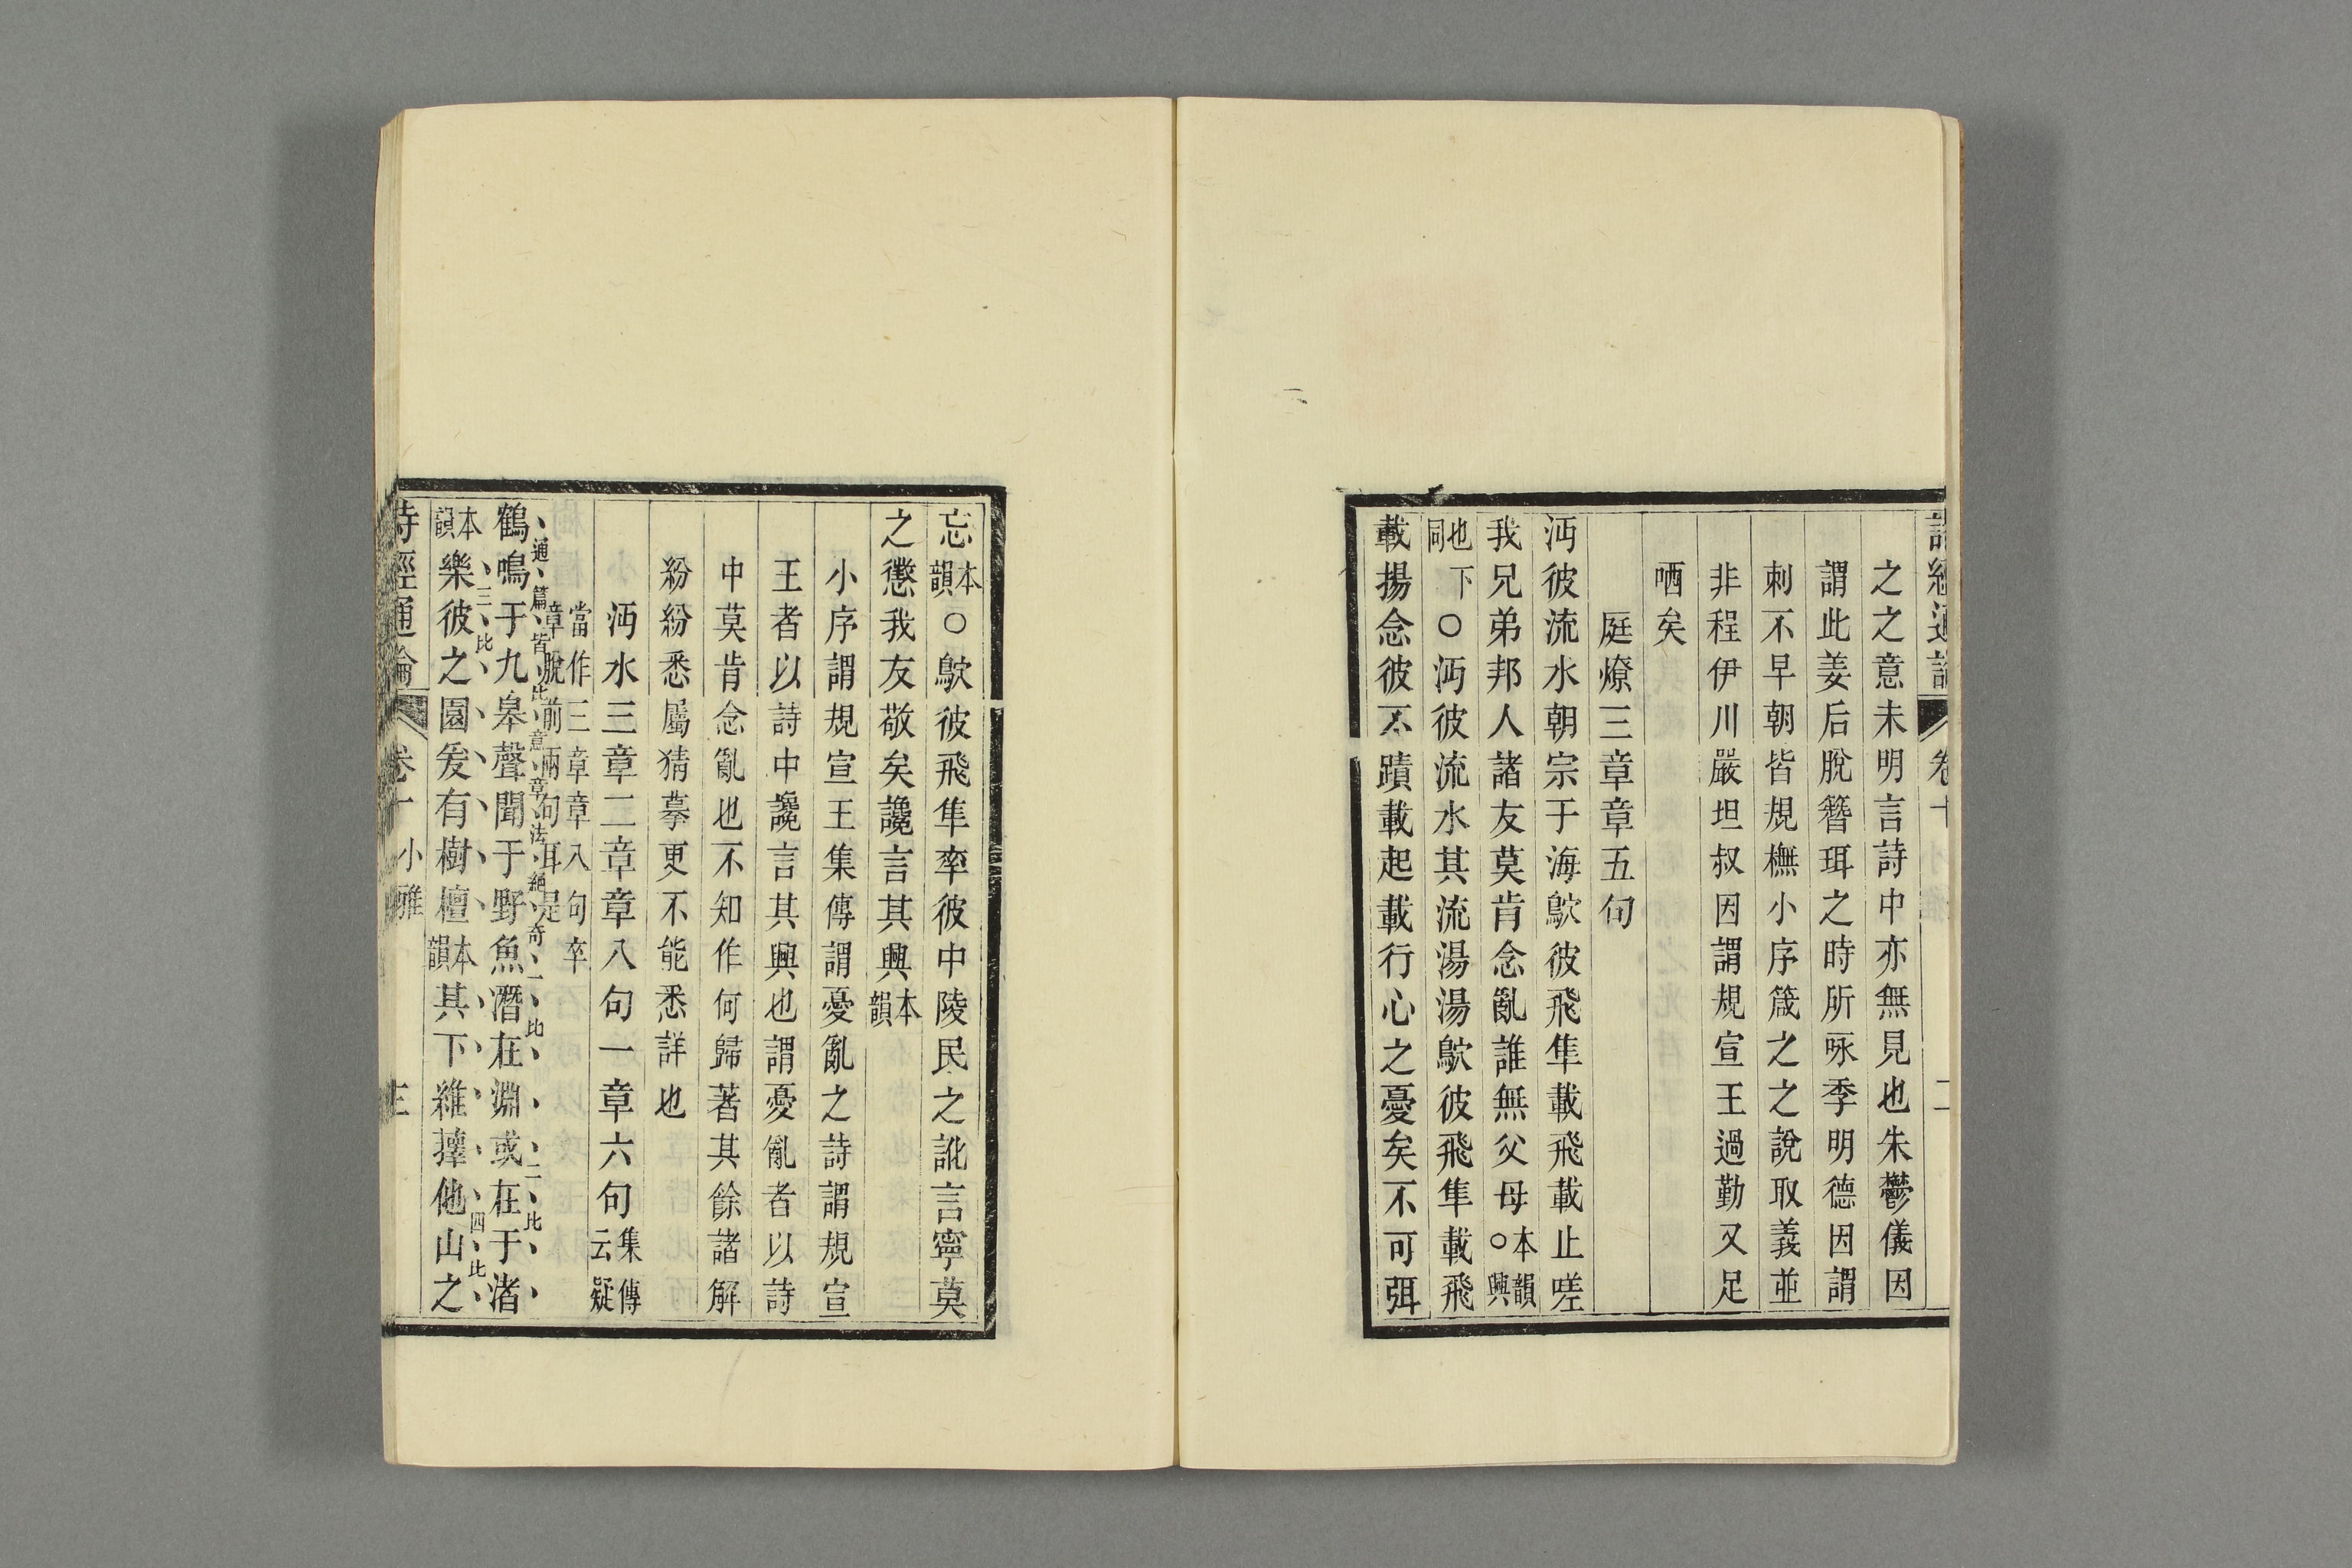 之之意未明言詩中亦無見也朱鬱儀因
謂此姜后脫簪珥之時所咏季明德因謂
刺不早朝皆規橅小序箴之之說取義並
非程伊川嚴坦叔因謂規宣王過勤又足
哂矣
庭燎三章章五句
沔彼流水朝宗于海鴥彼飛隼載飛載止嗟
我兄弟邦人諸友莫肯念亂誰無父母本韻○興
也下同○沔彼流水其流湯湯鴥彼飛隼載飛
載揚念彼不蹟載起載行心之憂矣不可弭
忘本韻○鴥彼飛隼率彼中陵民之訛言寧莫
之懲我友敬矣讒言其興本韻
小序謂規宣王集傳謂憂亂之詩謂規宣
王者以詩中讒言其興也謂憂亂者以詩
中莫肯念亂也不知作何歸著其餘諸解
紛紛悉屬猜摹更不能悉詳也
沔水三章二章章八句一章六句集傳云疑
當作三章章八句卒章脫前兩句耳是
通篇皆比意章法絕奇一比二比
鶴鳴于九皋聲聞于野魚潛在淵或在于渚
三比四比
本韻樂彼之園爰有樹檀本韻其下維蘀他山之
詩經通論 卷十 小雅 三